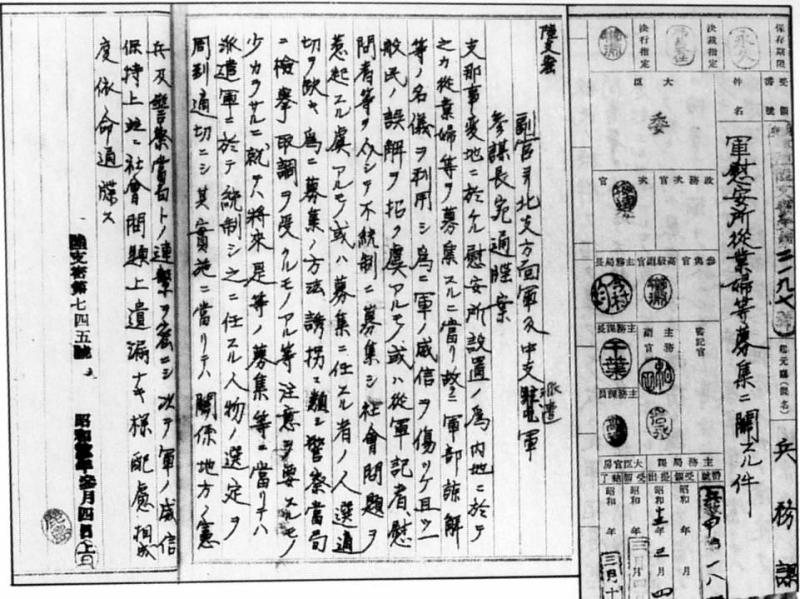 保存期限
永久
決裁指定
決行指定
件名
軍慰安所從業婦等募集ニ關スル件
兵務課
大臣
委
政務次官
次官
高級副官
主務局長
主務副官
主務課長
千葉
主務課員
書記官
大臣官房
主務局課
昭和 年 月
昭和十三年三月四
三月十
陸支密
副官ヨリ北支方面軍及中支派遣軍
參謀長宛通牒案
支那事變地ニ於ケル慰安所設置ノ爲内地ニ於テ
之カ從業婦等ヲ募集スルニ當リ故ラニ軍部諒解
等ノ名儀ヲ利用シ爲ニ軍ノ威信ヲ傷ツケ且ツ一
般民ノ誤解ヲ招ク虞アルモノ或ハ從軍記者、慰
問者等ヲ介シテ不統制ニ募集シ社會問題ヲ
惹起スル虞アルモノ或ハ募集ニ任スル者ノ人選適
切ヲ欠キ爲ニ募集ノ方法誘拐ニ類シ警察當局
ニ檢擧取調ヲ受クルモノアル等注意ヲ要スルモノ
少カラサルニ就テハ將來是等ノ募集等ニ當リテハ
派遣軍ニ於テ統制シ之ニ任スル人物ノ選定ヲ
周到適切ニシ其實施ニ當リテハ關係地方ノ憲
兵及警察當局トノ連繋ヲ密ニシ次テ軍ノ威信
保持上並ニ社會問題上遺漏ナキ樣配慮相成
度依命通牒ス
陸支密第七四五號 昭和拾參年參月四日